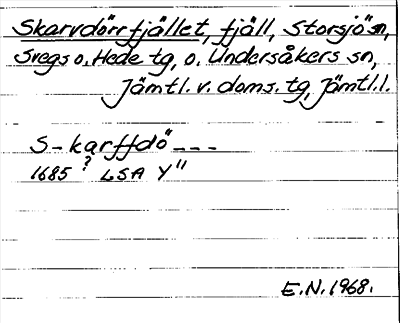 Skarvdörrfjället, fjäll, Storsjö sn,
Svegs o. Hede tg, o. Undersåkers sn,
Jämtl. v. doms. tg, Jämtl. l.
S-karffdö ---
?
1685 LSA Y"
E.N. 1968.